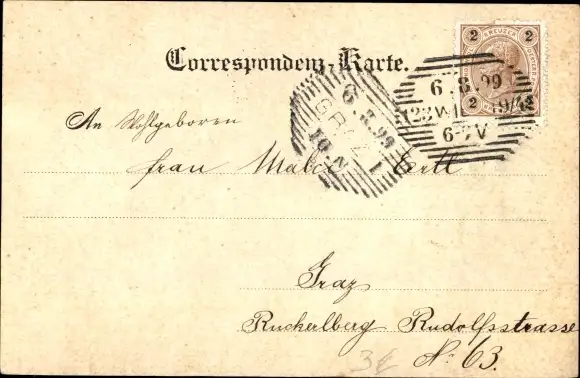 Correspondenz-Karte.
2 KREUZER 2
2 2
6.8.99
6-7V
6.8.99
GRAZ 1
10.V
An Wohlgeboren
Frau Ertl
Graz
Ruckerlberg Rudolfsstrasse
No. 63.